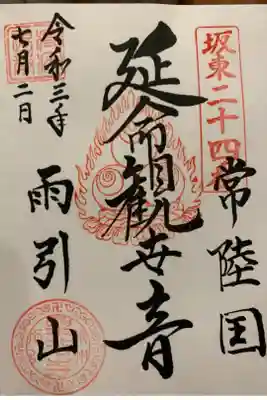 坂東二十四番
常陸国
延命観世音
雨引山
令和三年
七月二日